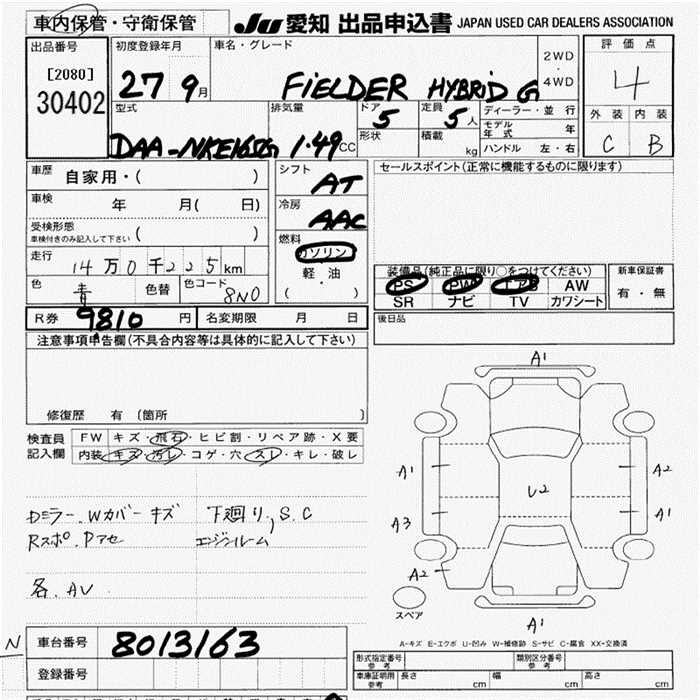 車内保管・守衛保管 JU 愛知 出品申込書 JAPAN USED CAR DEALERS ASSOCIATION
出品番号 初度登録年月 車名・グレード 評価点
[2080] 2WD
・
30402 27 9月 FiELDER HYBRiD G 4WD 4
型式 排気量 ドア 5 定員 5人 ディーラー・並行 外装 内装
モデル年式 年
DAA-NKE165G 1.49CC 形状 積載 kg ハンドル 左・右 C B
車歴 自家用・( ) シフト AT セールスポイント(正常に機能するものに限ります)
車検 年 月( 日) 冷房 AAC
受検形態
車検付きのみ記入して下さい ( ) 燃料
ガソリン
走行 14万0千225km 軽・油 装備品(純正品に限り○をつけてください) 新車保証書
色 青 色替 色コード 8N0 ( ・ ) PS PW エアB AW 有・無
SR ナビ TV カワシート
R券 9810円 名変期限 月 日 後日品
注意事項申告欄(不具合内容等は具体的に記入して下さい)
A1
修復歴 有 (箇所 )
検査員 FW キズ・飛石・ヒビ割・リペア跡・X要
記入欄 内装 キズ・汚レ・コゲ・穴・スレ・キレ・破レ
A1 A2
U2
Dミラー.Wカバー キズ 下廻り,S.C A3 A1
Rスポ.Pアセ エンジンルーム
A2
各.AV
スペア A1
N 車台番号 8013163 A-キズ E-エクボ U-凹み W-補修跡 S-サビ C-腐食 XX-交換済
形式指定番号 参考 類別区分番号 参考
登録番号 車庫証明用 参考 長さ cm 幅 cm 高さ cm